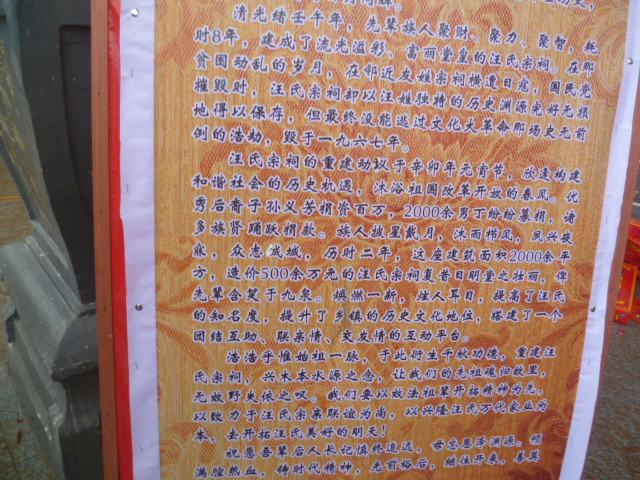 清光绪壬午年，先辈族人聚财、聚力、聚智，耗
时8年，建成了流光溢彩、富丽堂皇的汪氏宗祠。在那
贫困动乱的岁月，在邻近友姓宗祠横遭日寇，国民党
摧毁时，汪氏宗祠却以汪姓独特的历史渊源完好无损
地得以保存，但最终没能逃过文化大革命那场史无前
倒的浩劫，毁于一九六七年。
汪氏宗祠的重建动议于辛卯年元宵节，欣逢构建
和谐社会的历史机遇，沐浴祖国改革开放的春风。优
秀后裔子孙义芳捐资百万，2000余男丁纷纷募捐，诸
多族贤踊跃捐款。族人披星戴月，沐雨栉风，夙兴夜
寐，众志成城，历时二年，这座建筑面积2000余平
方，造价500余万元的汪氏宗祠复昔日明堂之壮丽，俾
先辈含笑于九泉。焕燃一新，烛人耳目，提高了汪氏
的知名度，提升了乡镇的历史文化地位，搭建了一个
团结互助、联亲情、交友情的互动平台。
浩浩乎惟始祖一脉，于此衍生千秋功德，重建汪
氏宗祠，兴木本水源之念，让我们的先祖魂归故里，
无效野史依之叹。我们要以效法祖辈开拓精神为先，
以致力于汪氏宗亲联谊为尚，以兴隆汪氏万代家业为
本，去开拓汪氏美好的明天！
祝愿吾辈后人长记慎终追远，毋忘恩泽渊源。倾
满腔热血，铸时代精神，光前裕后，继往开来，